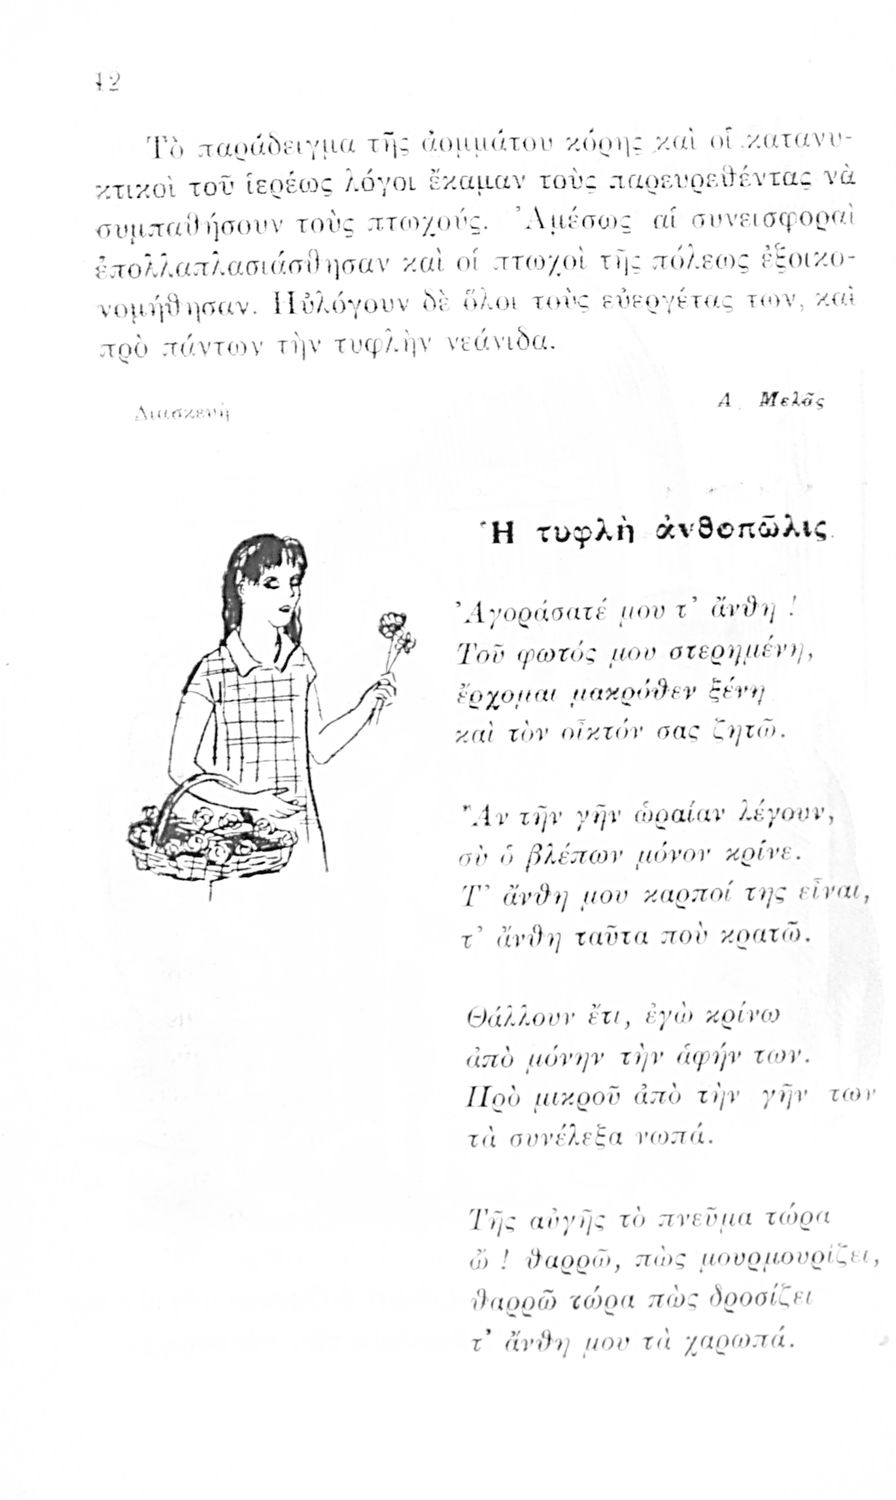 42
Τὸ παράδειγμα τῆς ἀομμάτου κόρης καὶ οἱ κατανυ-
κτικοὶ τοῦ ἱερέως λόγοι ἔκαμαν τοὺς παρευρεθέντας νὰ
συμπαθήσουν τοὺς πτωχούς. Ἀμέσως αἱ συνεισφοραὶ
ἐπολλαπλασιάσθησαν καὶ οἱ πτωχοὶ τῆς πόλεως ἐξοικο-
νομήθησαν. Ηὐλόγουν δὲ ὅλοι τοὺς εὐεργέτας των, καὶ
πρὸ πάντων τὴν τυφλὴν νεάνιδα.
Διασκευὴ
Α. Μελᾶς
Ἡ τυφλὴ ἀνθοπῶλις
Ἀγοράσατέ μου τ' ἄνθη !
Τοῦ φωτός μου στερημένη,
ἔρχομαι μακρόθεν ξένη
καὶ τὸν οἶκτόν σας ζητῶ.
Ἂν τὴν γῆν ὡραίαν λέγουν,
σὺ ὁ βλέπων μόνον κρίνε.
Τ' ἄνθη μου καρποί της εἶναι,
τ' ἄνθη ταῦτα ποὺ κρατῶ.
Θάλλουν ἔτι, ἐγὼ κρίνω
ἀπὸ μόνην τὴν ἁφήν των.
Πρὸ μικροῦ ἀπὸ τὴν γῆν των
τὰ συνέλεξα νωπά.
Τῆς αὐγῆς τὸ πνεῦμα τώρα
ὤ ! θαρρῶ, πὼς μουρμουρίζει,
θαρρῶ τώρα πὼς δροσίζει
τ' ἄνθη μου τὰ χαρωπά.